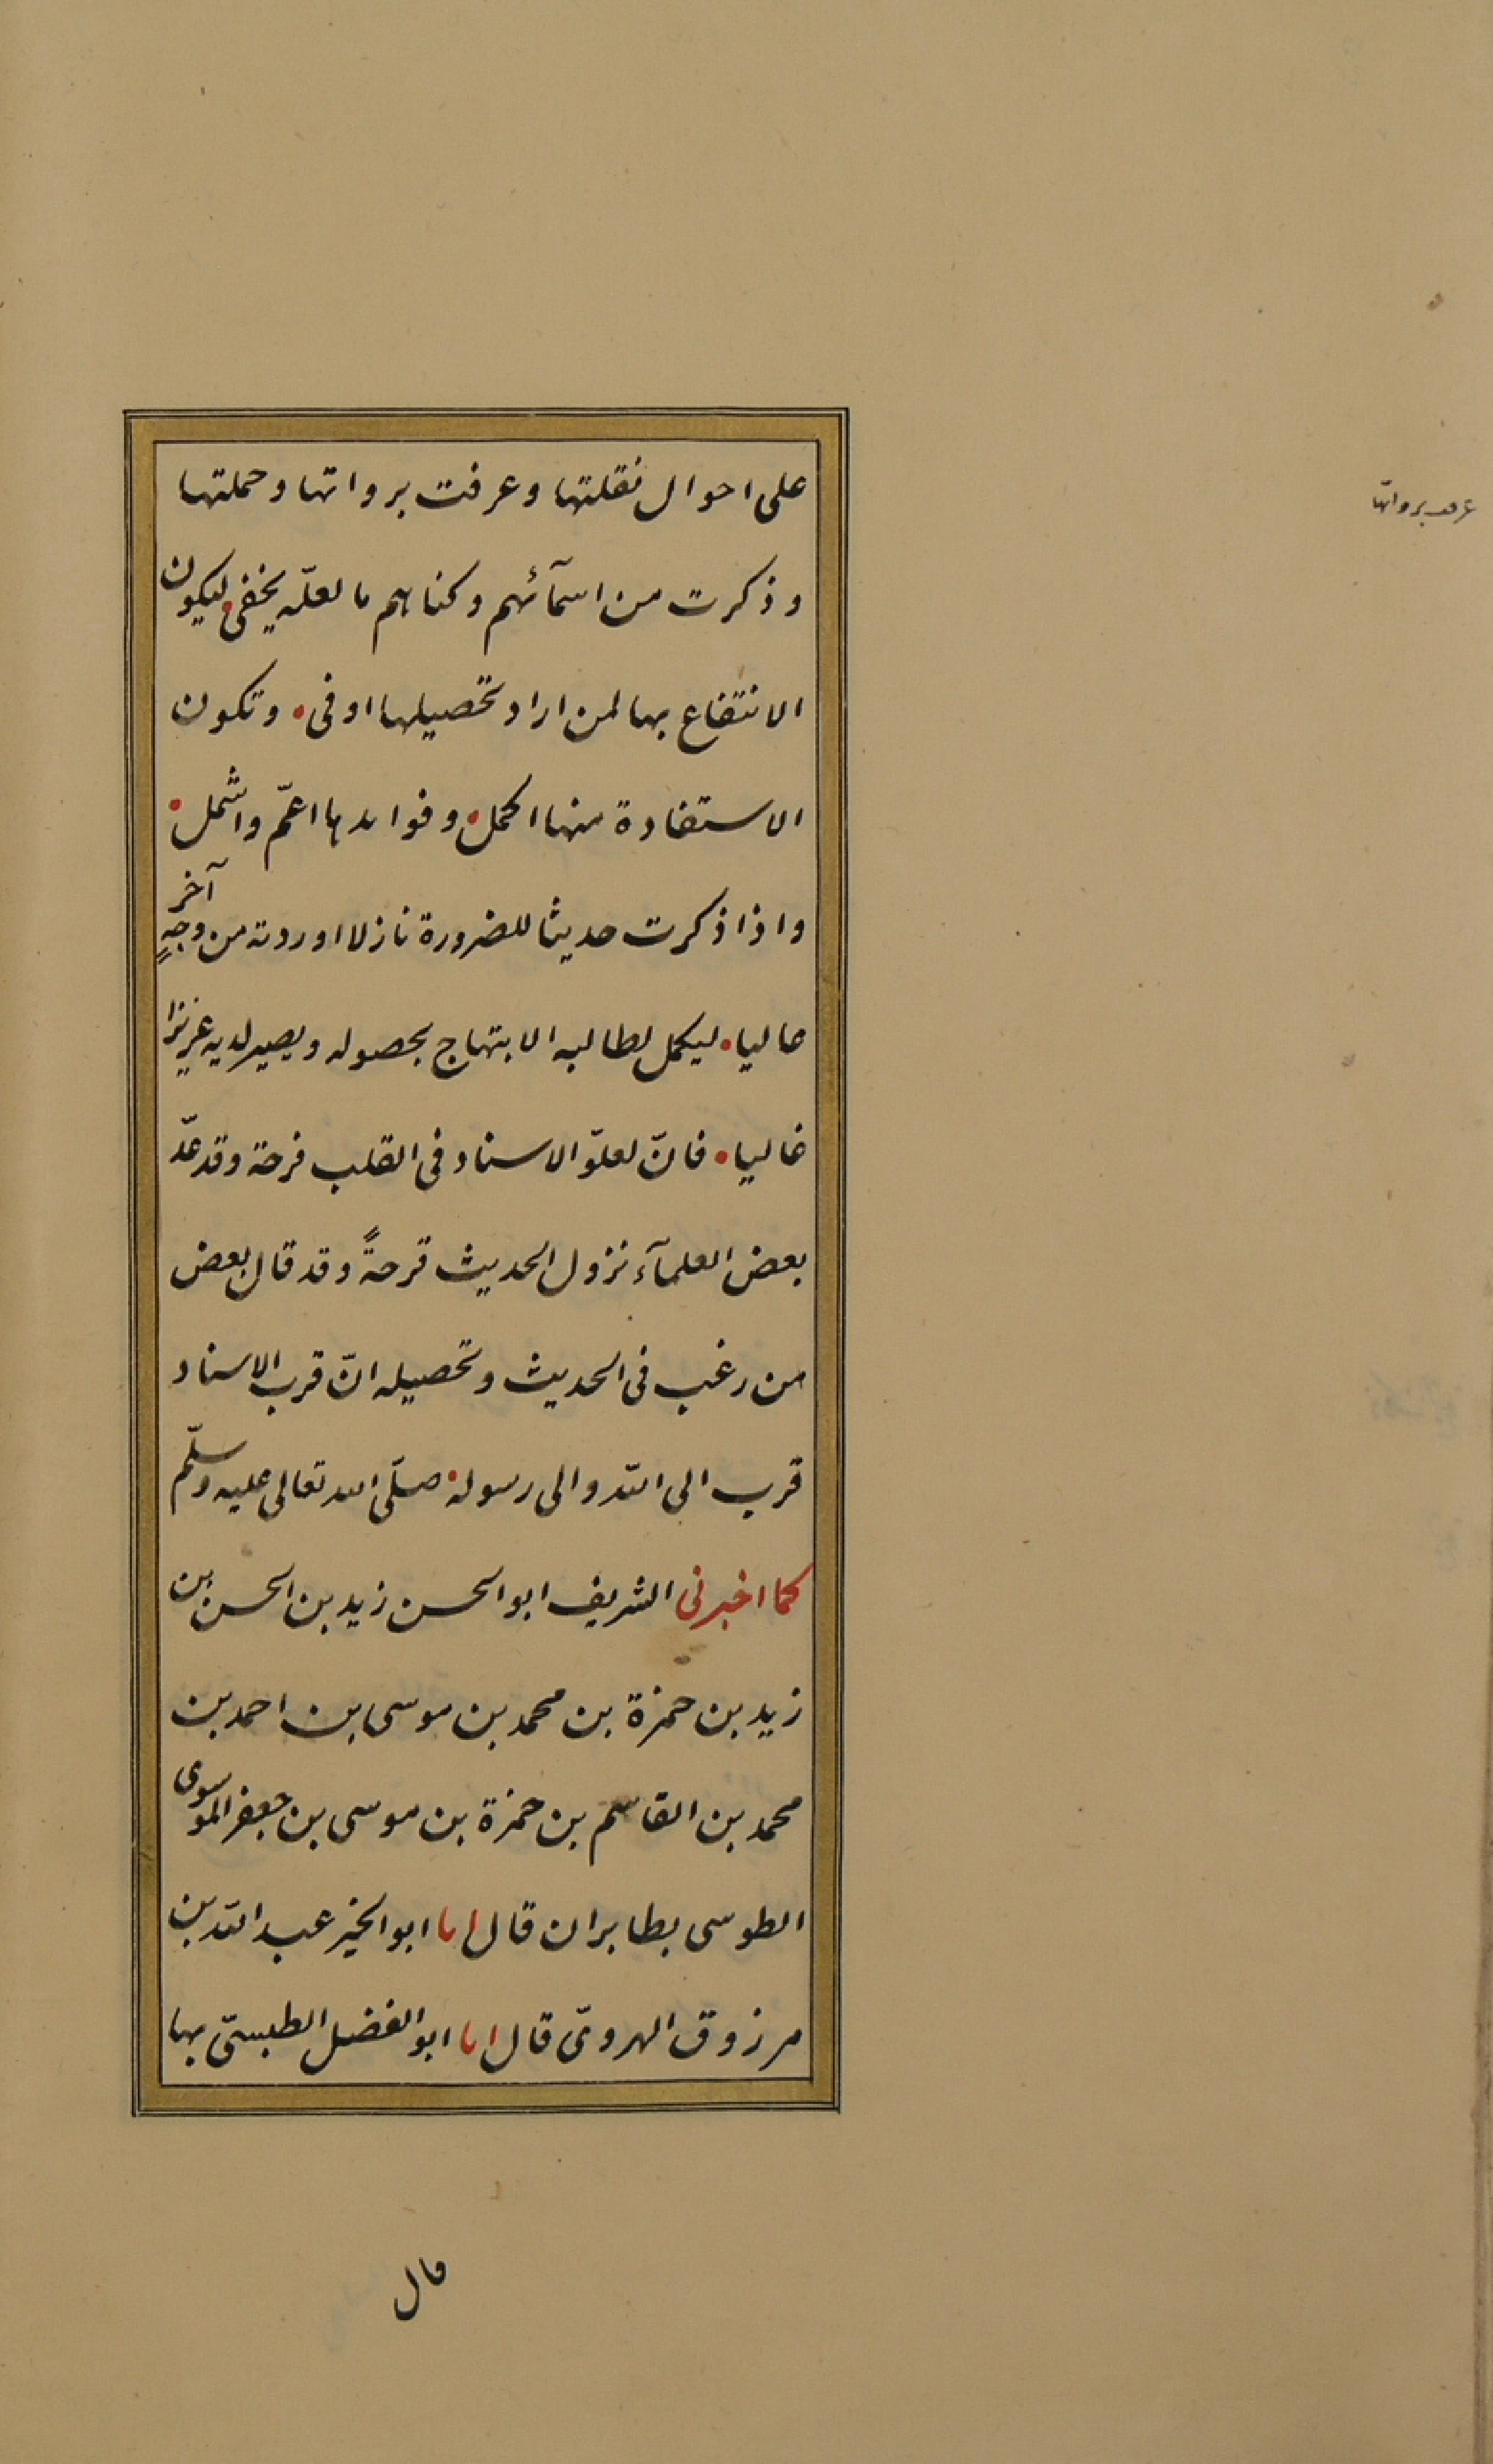 على احوال نقلتها وعرفت برواتها وحملتها
وذكرت من اسمآئهم وكناهم ما لعلّه يخفى ليكون
الانتفاع بها لمن اراد تحصيلها اوفى وتكون
الاستفادة منها اكمل وفوايدها اعمّ واشمل
واذا ذكرت حديثا للضرورة نازلا اوردته من وجهٍ آخر
عاليا ليكمل لطالبه الابتهاج بحصوله ويصير لديه عزيزا
غاليا فانّ لعلوّ الاسناد فى القلب فرحة وقد عدّ
بعض العلمآء نزول الحديث قرحةً وقد قال بعض
من رغب فى الحديث وتحصيله انّ قرب الاسناد
قرب الى الله والى رسوله صلّى الله تعالى عليه وسلّم
كما اخبرنى الشريف ابو الحسن زيد بن الحسن بن
زيد بن حمزة بن محمد بن موسى بن احمد بن
محمد بن القاسم بن حمزة بن موسى بن جعفر الموسوى
الطوسى بطابران قال انا ابو الخير عبد الله بن
مرزوق الهروىّ قال انا ابو الفضل الطبسىّ بها
قال
عرفت برواتها